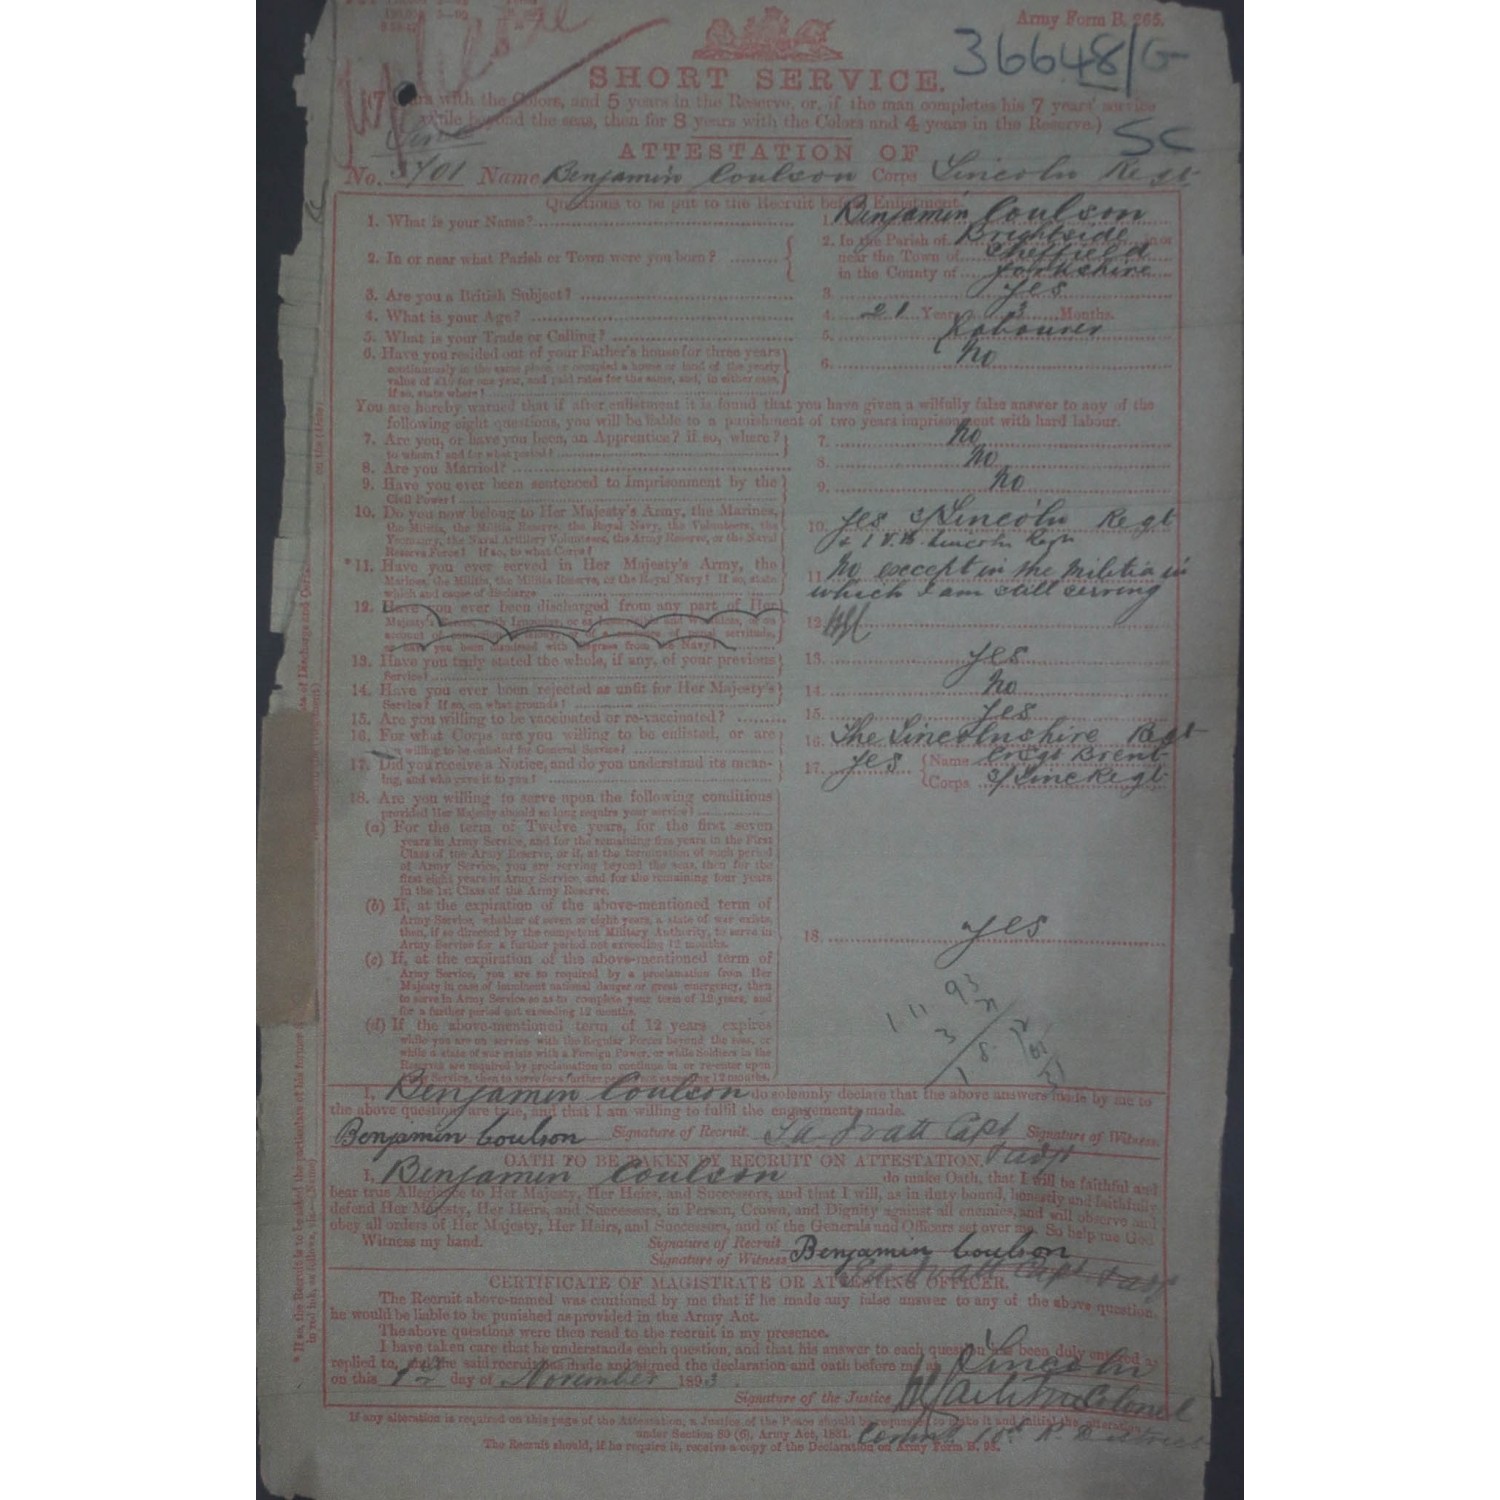 Army Form B. 265.
36648/G
SHORT SERVICE.
(7 years with the Colors, and 5 years in the Reserve, or, if the man completes his 7 years' service
while beyond the seas, then for 8 years with the Colors and 4 years in the Reserve.)
SC
ATTESTATION OF
No. Name Benjamin Coulson Corps Lincoln Regt
Questions to be put to the Recruit before Enlistment.
1. What is your Name? 1. Benjamin Coulson
2. In or near what Parish or Town were you born? 2. In the Parish of Brightside in or
near the Town of Sheffield
in the County of Yorkshire
3. Are you a British Subject? 3. Yes
4. What is your Age? 4. 21 Years 3 Months.
5. What is your Trade or Calling? 5. Labourer
6. Have you resided out of your Father's house for three years 6. No
continuously in the same place, or occupied a house or land of the yearly
value of £10 for one year, and paid rates for the same, and, in either case,
if so, state where?
You are hereby warned that if after enlistment it is found that you have given a wilfully false answer to any of the
following eight questions, you will be liable to a punishment of two years imprisonment with hard labour.
7. Are you, or have you been, an Apprentice? if so, where? 7. No
to whom? and for what period?
8. Are you Married? 8. No
9. Have you ever been sentenced to Imprisonment by the 9. No
Civil Power?
10. Do you now belong to Her Majesty's Army, the Marines, 10. Yes Lincoln Regt
the Militia, the Militia Reserve, the Royal Navy, the Volunteers, the & 1 V.B. Lincoln Regt
Yeomanry, the Naval Artillery Volunteers, the Army Reserve, or the Naval
Reserve Force? If so, to what Corps?
*11. Have you ever served in Her Majesty's Army, the 11. No except in the Militia in
Marines, the Militia, the Militia Reserve, or the Royal Navy? If so, state which I am still serving
which and cause of discharge
12. Have you ever been discharged from any part of Her 12.
13. Have you truly stated the whole, if any, of your previous 13. Yes
Service?
14. Have you ever been rejected as unfit for Her Majesty's 14. No
Service? If so, on what grounds?
15. Are you willing to be vaccinated or re-vaccinated? 15. Yes
16. For what Corps are you willing to be enlisted, or are 16. The Lincolnshire Regt
you willing to be enlisted for General Service?
17. Did you receive a Notice, and do you understand its mean- 17. Yes Name Brent
ing, and who gave it to you? Corps Linc Regt
18. Are you willing to serve upon the following conditions
provided Her Majesty should so long require your service?
(a) For the term of Twelve years, for the first seven
years in Army Service, and for the remaining five years in the First
Class of the Army Reserve, or if, at the termination of such period
of Army Service, you are serving beyond the seas, then for the
first eight years in Army Service, and for the remaining four years
in the 1st Class of the Army Reserve.
(b) If, at the expiration of the above-mentioned term of
Army Service, whether of seven or eight years, a state of war exists,
then, if so directed by the competent Military Authority, to serve in
Army Service for a further period not exceeding 12 months.
18. Yes
(c) If, at the expiration of the above-mentioned term of
Army Service, you are so required by a proclamation from Her
Majesty in case of imminent national danger or great emergency, then
to serve in Army Service so as to complete your term of 12 years, and
for a further period not exceeding 12 months.
(d) If the above-mentioned term of 12 years expires
while you are on service with the Regular Forces beyond the seas, or
while a state of war exists with a Foreign Power, or while Soldiers in the
Reserve are required by proclamation to continue in or re-enter upon
Army Service, then to serve for a further period not exceeding 12 months.
I, Benjamin Coulson do solemnly declare that the above answers made by me to
the above questions are true, and that I am willing to fulfil the engagements made.
Benjamin Coulson Signature of Recruit. Capt Signature of Witness.
OATH TO BE TAKEN BY RECRUIT ON ATTESTATION.
I, Benjamin Coulson do make Oath, that I will be faithful and
bear true Allegiance to Her Majesty, Her Heirs, and Successors, and that I will, as in duty bound, honestly and faithfully
defend Her Majesty, Her Heirs, and Successors, in Person, Crown, and Dignity against all enemies, and will observe and
obey all orders of Her Majesty, Her Heirs, and Successors, and of the Generals and Officers set over me. So help me God.
Witness my hand. Signature of Recruit Benjamin Coulson
Signature of Witness
CERTIFICATE OF MAGISTRATE OR ATTESTING OFFICER.
The Recruit above-named was cautioned by me that if he made any false answer to any of the above questions
he would be liable to be punished as provided in the Army Act.
The above questions were then read to the recruit in my presence.
I have taken care that he understands each question, and that his answer to each question has been duly entered as
replied to, and the said recruit has made and signed the declaration and oath before me at Lincoln
on this 1st day of November 1893
Signature of the Justice Colonel
If any alteration is required on this page of the Attestation, a Justice of the Peace should be requested to make it and initial the alteration
under Section 80 (6), Army Act, 1881.
The Recruit should, if he require it, receive a copy of the Declaration on Army Form B. 93.